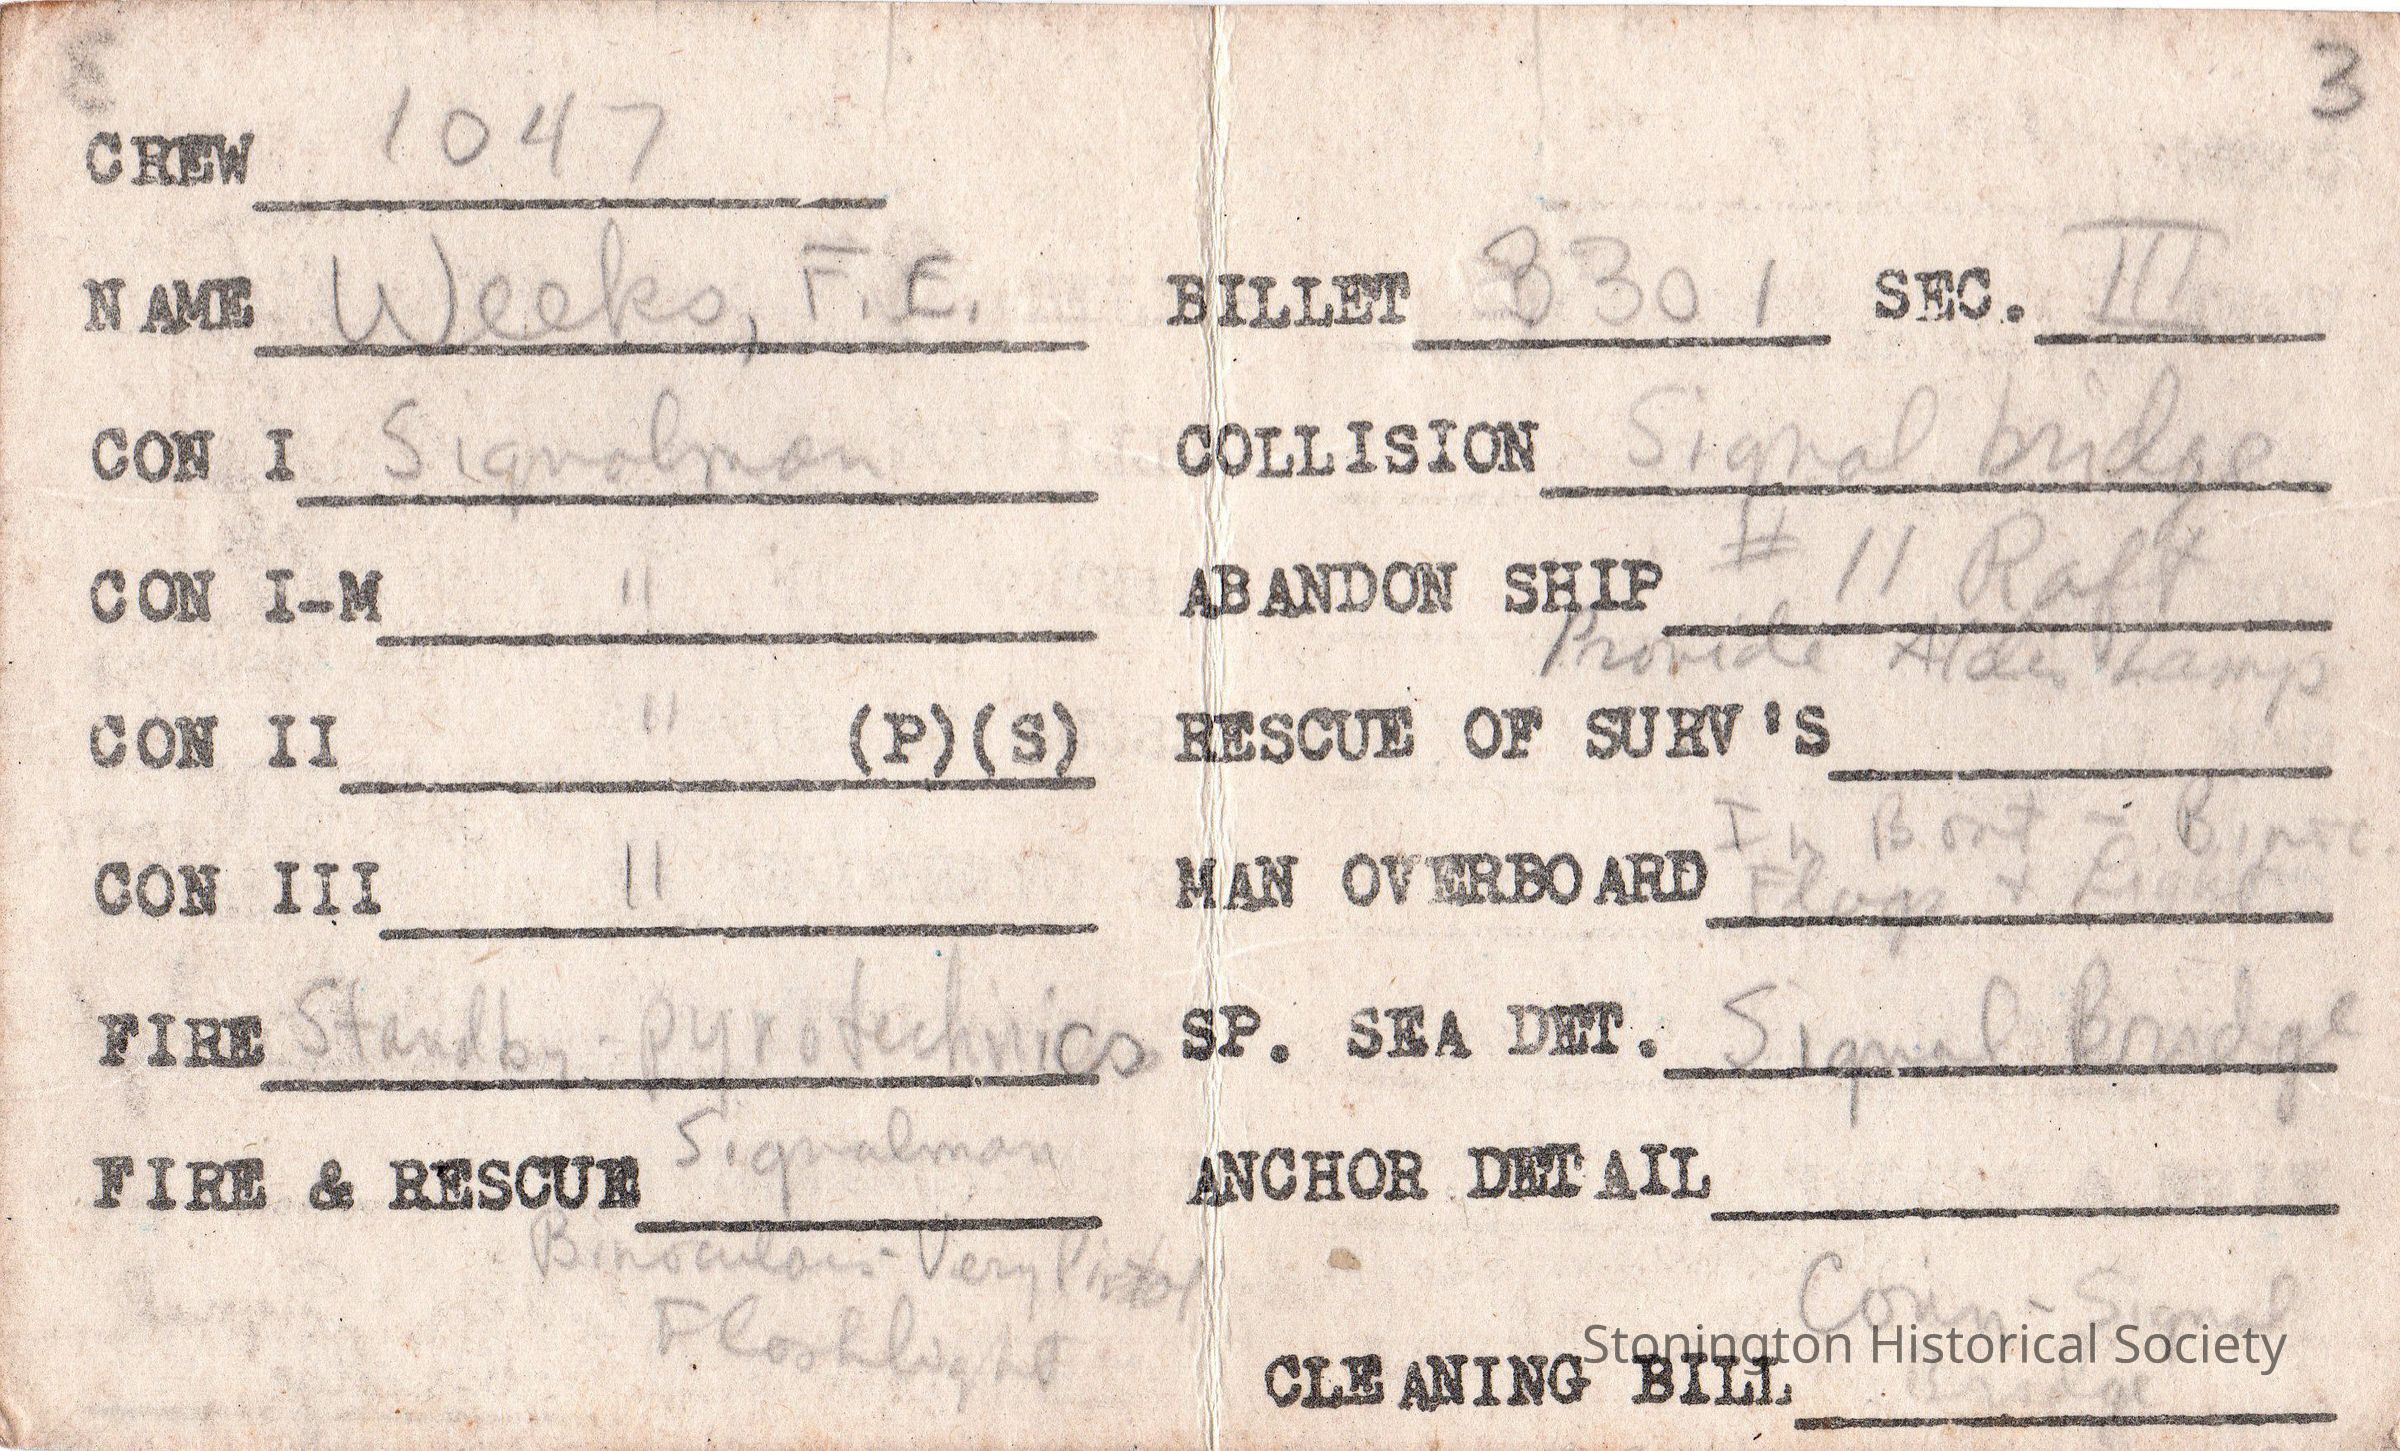 3
CREW 1047
NAME Weeks, F.E.
CON I Signalman
CON I-M "
CON II " (P)(S)
CON III "
FIRE Standby - pyrotechnics
FIRE & RESCUE Signalman
Binoculars - Very Pistol
Flashlight
BILLET 3301 SEC. III
COLLISION Signal bridge
ABANDON SHIP # 11 Raft
Provide Aldis Lamp
RESCUE OF SURV'S
In Boat - Binoc
MAN OVERBOARD Flags +
SP. SEA DET. Signal Bridge
ANCHOR DETAIL
Signal
CLEANING BILL Bridge
Stonington Historical Society